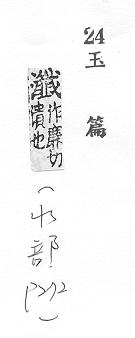 24 玉篇
瀸作廉切
漬也
(水部 p292)